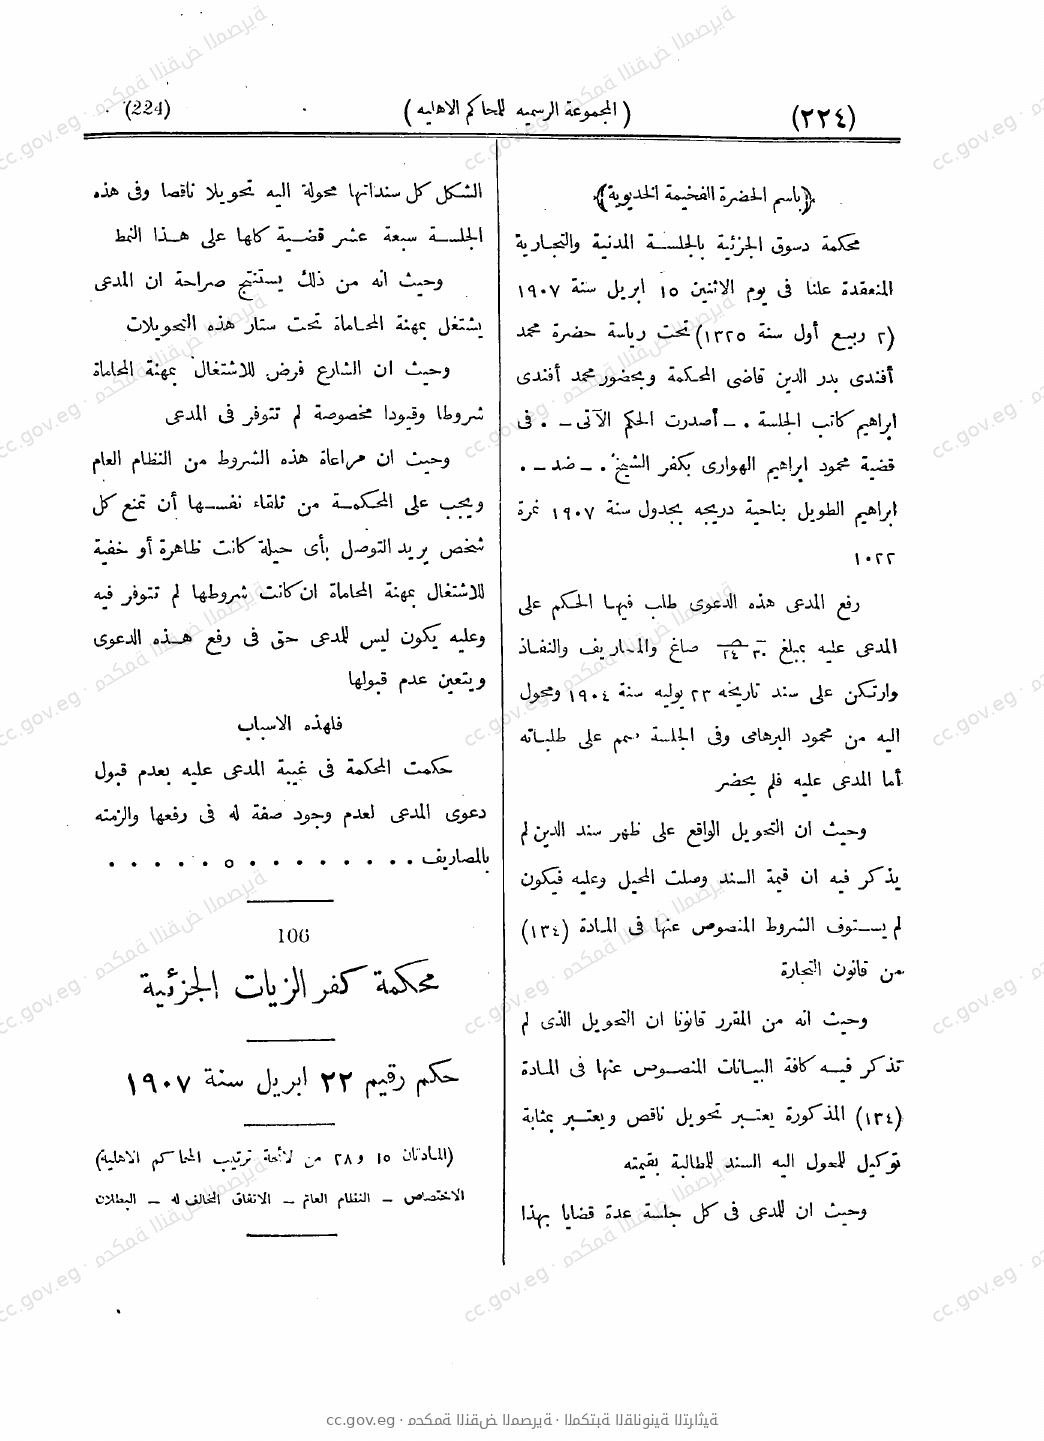 (٢٢٤)
(المجموعة الرسميه للمحاكم الاهليه)
(224)
﴿باسم الحضرة الفخيمة الخديوية﴾
محكمة دسوق الجزئية بالجلسة المدنية والتجارية
المنعقدة علنا فى يوم الاثنين ١٥ ابريل سنة ١٩٠٧
(٢ ربيع أول سنة ١٣٢٥) تحت رياسة حضرة محمد
أفندى بدر الدين قاضى المحكمة وبحضور محمد أفندى
ابراهيم كاتب الجلسة . ـ أصدرت الحكم الآتى ـ . فى
قضية محمود ابراهيم الهوارى بكفر الشيخ . ـ ضد ـ .
ابراهيم الطويل بناحية دريجه بجدول سنة ١٩٠٧ نمرة
١٠٢٢
رفع المدعى هذه الدعوى طلب فيها الحكم على
المدعى عليه بمبلغ صاغ والمصاريف والنفاذ
وارتكن على سند تاريخه ٢٣ يوليه سنة ١٩٠٤ ومحول
اليه من محمود البرهامى وفى الجلسة صمم على طلباته
أما المدعى عليه فلم يحضر
وحيث ان التحويل الواقع على ظهر سند الدين لم
يذكر فيه ان قيمة السند وصلت المحيل وعليه فيكون
لم يستوف الشروط المنصوص عنها فى المادة (١٣٤)
من قانون التجارة
وحيث انه من المقرر قانونا ان التحويل الذى لم
تذكر فيه كافة البيانات المنصوص عنها فى المادة
(١٣٤) المذكورة يعتبر تحويل ناقص ويعتبر بمثابة
توكيل للمحول اليه السند للمطالبة بقيمته
وحيث ان للمدعى فى كل جلسة عدة قضايا بهذا
الشكل كل سنداتها محولة اليه تحويلا ناقصا وفى هذه
الجلسة سبعة عشر قضية كلها على هذا النمط
وحيث انه من ذلك يستنتج صراحة ان المدعى
يشتغل بمهنة المحاماة تحت ستار هذه التحويلات
وحيث ان الشارع فرض للاشتغال بمهنة المحاماة
شروطا وقيودا مخصوصة لم تتوفر فى المدعى
وحيث ان مراعاة هذه الشروط من النظام العام
ويجب على المحكمة من تلقاء نفسها أن تمنع كل
شخص يريد التوصل بأى حيلة كانت ظاهرة أو خفية
للاشتغال بمهنة المحاماة ان كانت شروطها لم تتوفر فيه
وعليه يكون ليس للمدعى حق فى رفع هذه الدعوى
ويتعين عدم قبولها
فلهذه الاسباب
حكمت المحكمة فى غيبة المدعى عليه بعدم قبول
دعوى المدعى لعدم وجود صفة له فى رفعها والزمته
بالمصاريف . . . . . . . . ٥ . . . . .
106
محكمة كفر الزيات الجزئية
حكم رقيم ٢٢ ابريل سنة ١٩٠٧
(المادتان ١٥ و٢٨ من لائحة ترتيب المحاكم الاهلية)
الاختصاص ـ النظام العام ـ الاتفاق المخالف له ـ البطلان
cc.gov.eg · محكمة النقض المصرية · المكتبة القانونية التراثية